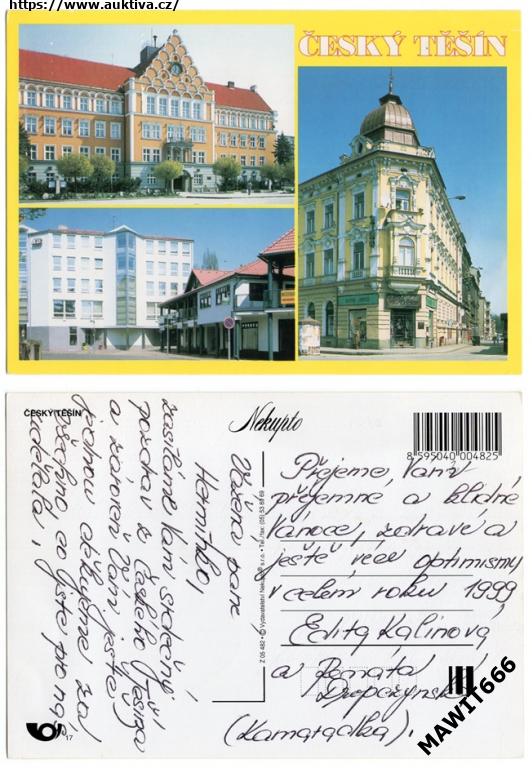 https://www.auktiva.cz/
ČESKÝ TĚŠÍN
ČESKÝ TĚŠÍN
Nekupto
8 595040 004825
Z 05 482 • © Vydavatelství Nekupto® s.r.o. • Tel./fax: (05) 53 89 69
Vážená paní
zasíláme Vám srdečný
pozdrav z Českého Těšína
a zároveň Vám ještě
jednou děkujeme za
všechno co jste pro nás
udělala.
Přejeme Vám
příjemné a klidné
Vánoce, zdravé a
ještě více optimismu
v celém roku 1999
Edita Kalinová
a Renata
(Kamaradka).
17
MAWIT666